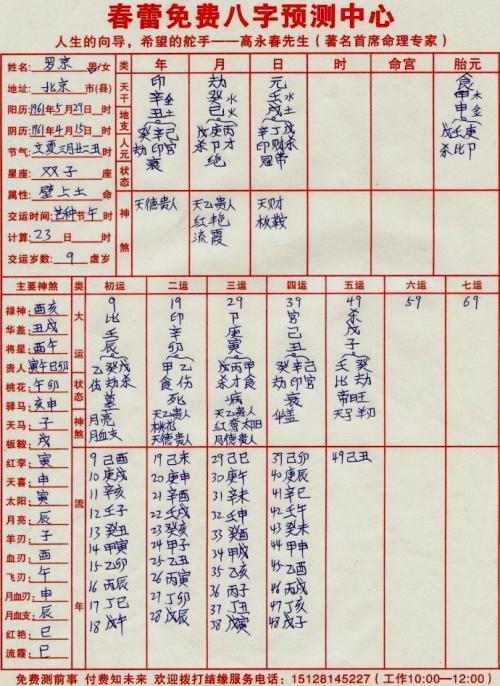 春蕾免费八字预测中心
人生的向导，希望的舵手——高永春先生（著名首席命理专家）
姓名：罗京 男/女 类 年 月 日 时 命宫 胎元
地址：北京 市(县) 天干 印 劫 元 食
阳历：1961年5月29日 时 地支 辛金 癸水 壬水 甲木
阴历：1961年4月15日 时 人元 丑土 巳火 戌土 申金
癸辛己 戊庚丙 辛丁戊 戊壬庚
劫印官 杀卩才 印财杀 杀比卩
状态 衰 绝 冠带
星座：双子 座
属性：壁上土 命 神煞 天德贵人 天乙贵人 天财
交运时间：芒种节午 时 红艳 板鞍
计算：23 日 时 流霞
交运岁数：9 虚岁
主要神煞 类 初运 二运 三运 四运 五运 六运 七运
禄神：酉亥 大运 9 19 29 39 49 59 69
华盖：丑戌 比 印 卩 官 杀
将星：酉午 壬 辛 庚 己 戊
贵人：寅午巳卯 辰 卯 寅 丑 子
桃花：午卯 状态 乙癸戊 甲乙 戊丙甲 癸辛己 壬癸
驿马：亥申 伤劫杀 食伤 杀才食 劫印官 比劫
天马：子 神煞 墓 死 病 衰 帝旺
板鞍：戌 月亮 天乙贵人 天乙贵人 华盖 羊刃
月血支 桃花 红鸾太阳
天德贵人 月德贵人
红孪：寅 流年 9己酉 19己未 29己巳 39己卯 49己丑
天喜：申 10庚戌 20庚申 30庚午 40庚辰
太阳：寅 11辛亥 21辛酉 31辛未 41辛巳
月亮：辰 12壬子 22壬戌 32壬申 42壬午
羊刃：子 13癸丑 23癸亥 33癸酉 43癸未
血刃：酉 14甲寅 24甲子 34甲戌 44甲申
飞刃：午 15乙卯 25乙丑 35乙亥 45乙酉
月血刃：申 16丙辰 26丙寅 36丙子 46丙戌
月血支：辰 17丁巳 27丁卯 37丁丑 47丁亥
红艳：巳 18戊午 28戊辰 38戊寅 48戊子
流霞：巳
免费测前事 付费知未来 欢迎拨打结缘服务电话：15128145227（工作10:00—12:00）